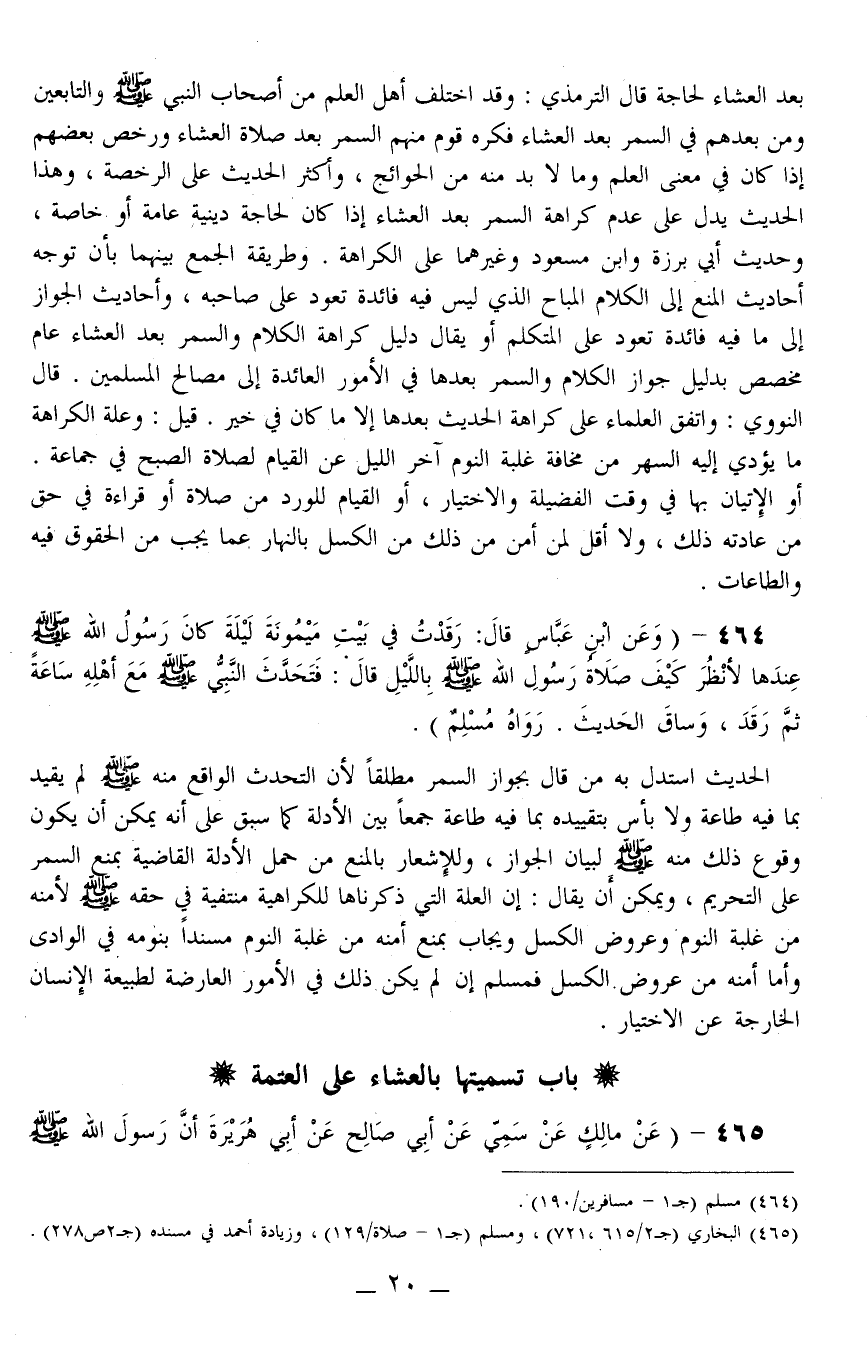 بعد العشاء لحاجة قال الترمذي : وقد اختلف أهل العلم من أصحاب النبي ﷺ والتابعين
ومن بعدهم في السمر بعد العشاء فكره قوم منهم السمر بعد صلاة العشاء ورخص بعضهم
إذا كان في معنى العلم وما لا بد منه من الحوائج ، وأكثر الحديث على الرخصة ، وهذا
الحديث يدل على عدم كراهة السمر بعد العشاء إذا كان لحاجة دينية عامة أو خاصة ،
وحديث أبي برزة وابن مسعود وغيرهما على الكراهة . وطريقة الجمع بينهما بأن توجه
أحاديث المنع إلى الكلام المباح الذي ليس فيه فائدة تعود على صاحبه ، وأحاديث الجواز
إلى ما فيه فائدة تعود على المتكلم أو يقال دليل كراهة الكلام والسمر بعد العشاء عام
مخصص بدليل جواز الكلام والسمر بعدها في الأمور العائدة إلى مصالح المسلمين . قال
النووي : واتفق العلماء على كراهة الحديث بعدها إلا ما كان في خير . قيل : وعلة الكراهة
ما يؤدي إليه السهر من مخافة غلبة النوم آخر الليل عن القيام لصلاة الصبح في جماعة .
أو الإتيان بها في وقت الفضيلة والاختيار ، أو القيام للورد من صلاة أو قراءة في حق
من عادته ذلك ، ولا أقل لمن أمن من ذلك من الكسل بالنهار عما يجب من الحقوق فيه
والطاعات .
٤٦٤ – ( وَعَن ابْنِ عَبَّاسٍ قالَ: رَقَدْتُ في بَيْتِ مَيْمُونَةَ لَيْلَةَ كانَ رَسُولُ الله ﷺ
عِندَها لأنْظُرَ كَيْفَ صَلَاةُ رَسُولِ الله ﷺ بِاللَّيْلِ قالَ : فَتَحَدَّثَ النَّبِيُّ ﷺ مَعَ أهْلِهِ سَاعَةً
ثمَّ رَقَدَ ، وَساقَ الحَديثَ . رَوَاهُ مُسْلِمٌ ) .
الحديث استدل به من قال بجواز السمر مطلقاً لأن التحدث الواقع منه ﷺ لم يقيد
بما فيه طاعة ولا بأس بتقييده بما فيه طاعة جمعاً بين الأدلة كما سبق على أنه يمكن أن يكون
وقوع ذلك منه ﷺ لبيان الجواز ، وللإشعار بالمنع من حمل الأدلة القاضية بمنع السمر
على التحريم ، ويمكن أن يقال : إن العلة التي ذكرناها للكراهية منتفية في حقه ﷺ لأمنه
من غلبة النوم وعروض الكسل ويجاب بمنع أمنه من غلبة النوم مسنداً بنومه في الوادى
وأما أمنه من عروض الكسل فمسلم إن لم يكن ذلك في الأمور العارضة لطبيعة الإنسان
الخارجة عن الاختيار .
باب تسميتها بالعشاء على العتمة
٤٦٥ – ( عَنْ مالِكٍ عَنْ سَمِيّ عَنْ أبي صَالِح عَنْ أبي هُرَيْرَةَ أنَّ رَسولَ الله ﷺ
(٤٦٤) مسلم (جـ١ – مسافرين/١٩٠) .
(٤٦٥) البخاري (جـ٢/٦١٥ ،٧٢١) ، ومسلم (جـ١ – صلاة/١٢٩) ، وزيادة أحمد في مسنده (جـ٢ص٢٧٨) .
– ٢٠ –